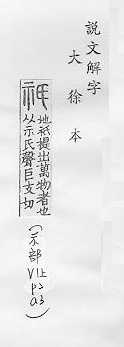 說文解字
大徐本
祇
地祇提出萬物者也
从示氏聲巨支切
(示部
V1上
p2
a3)